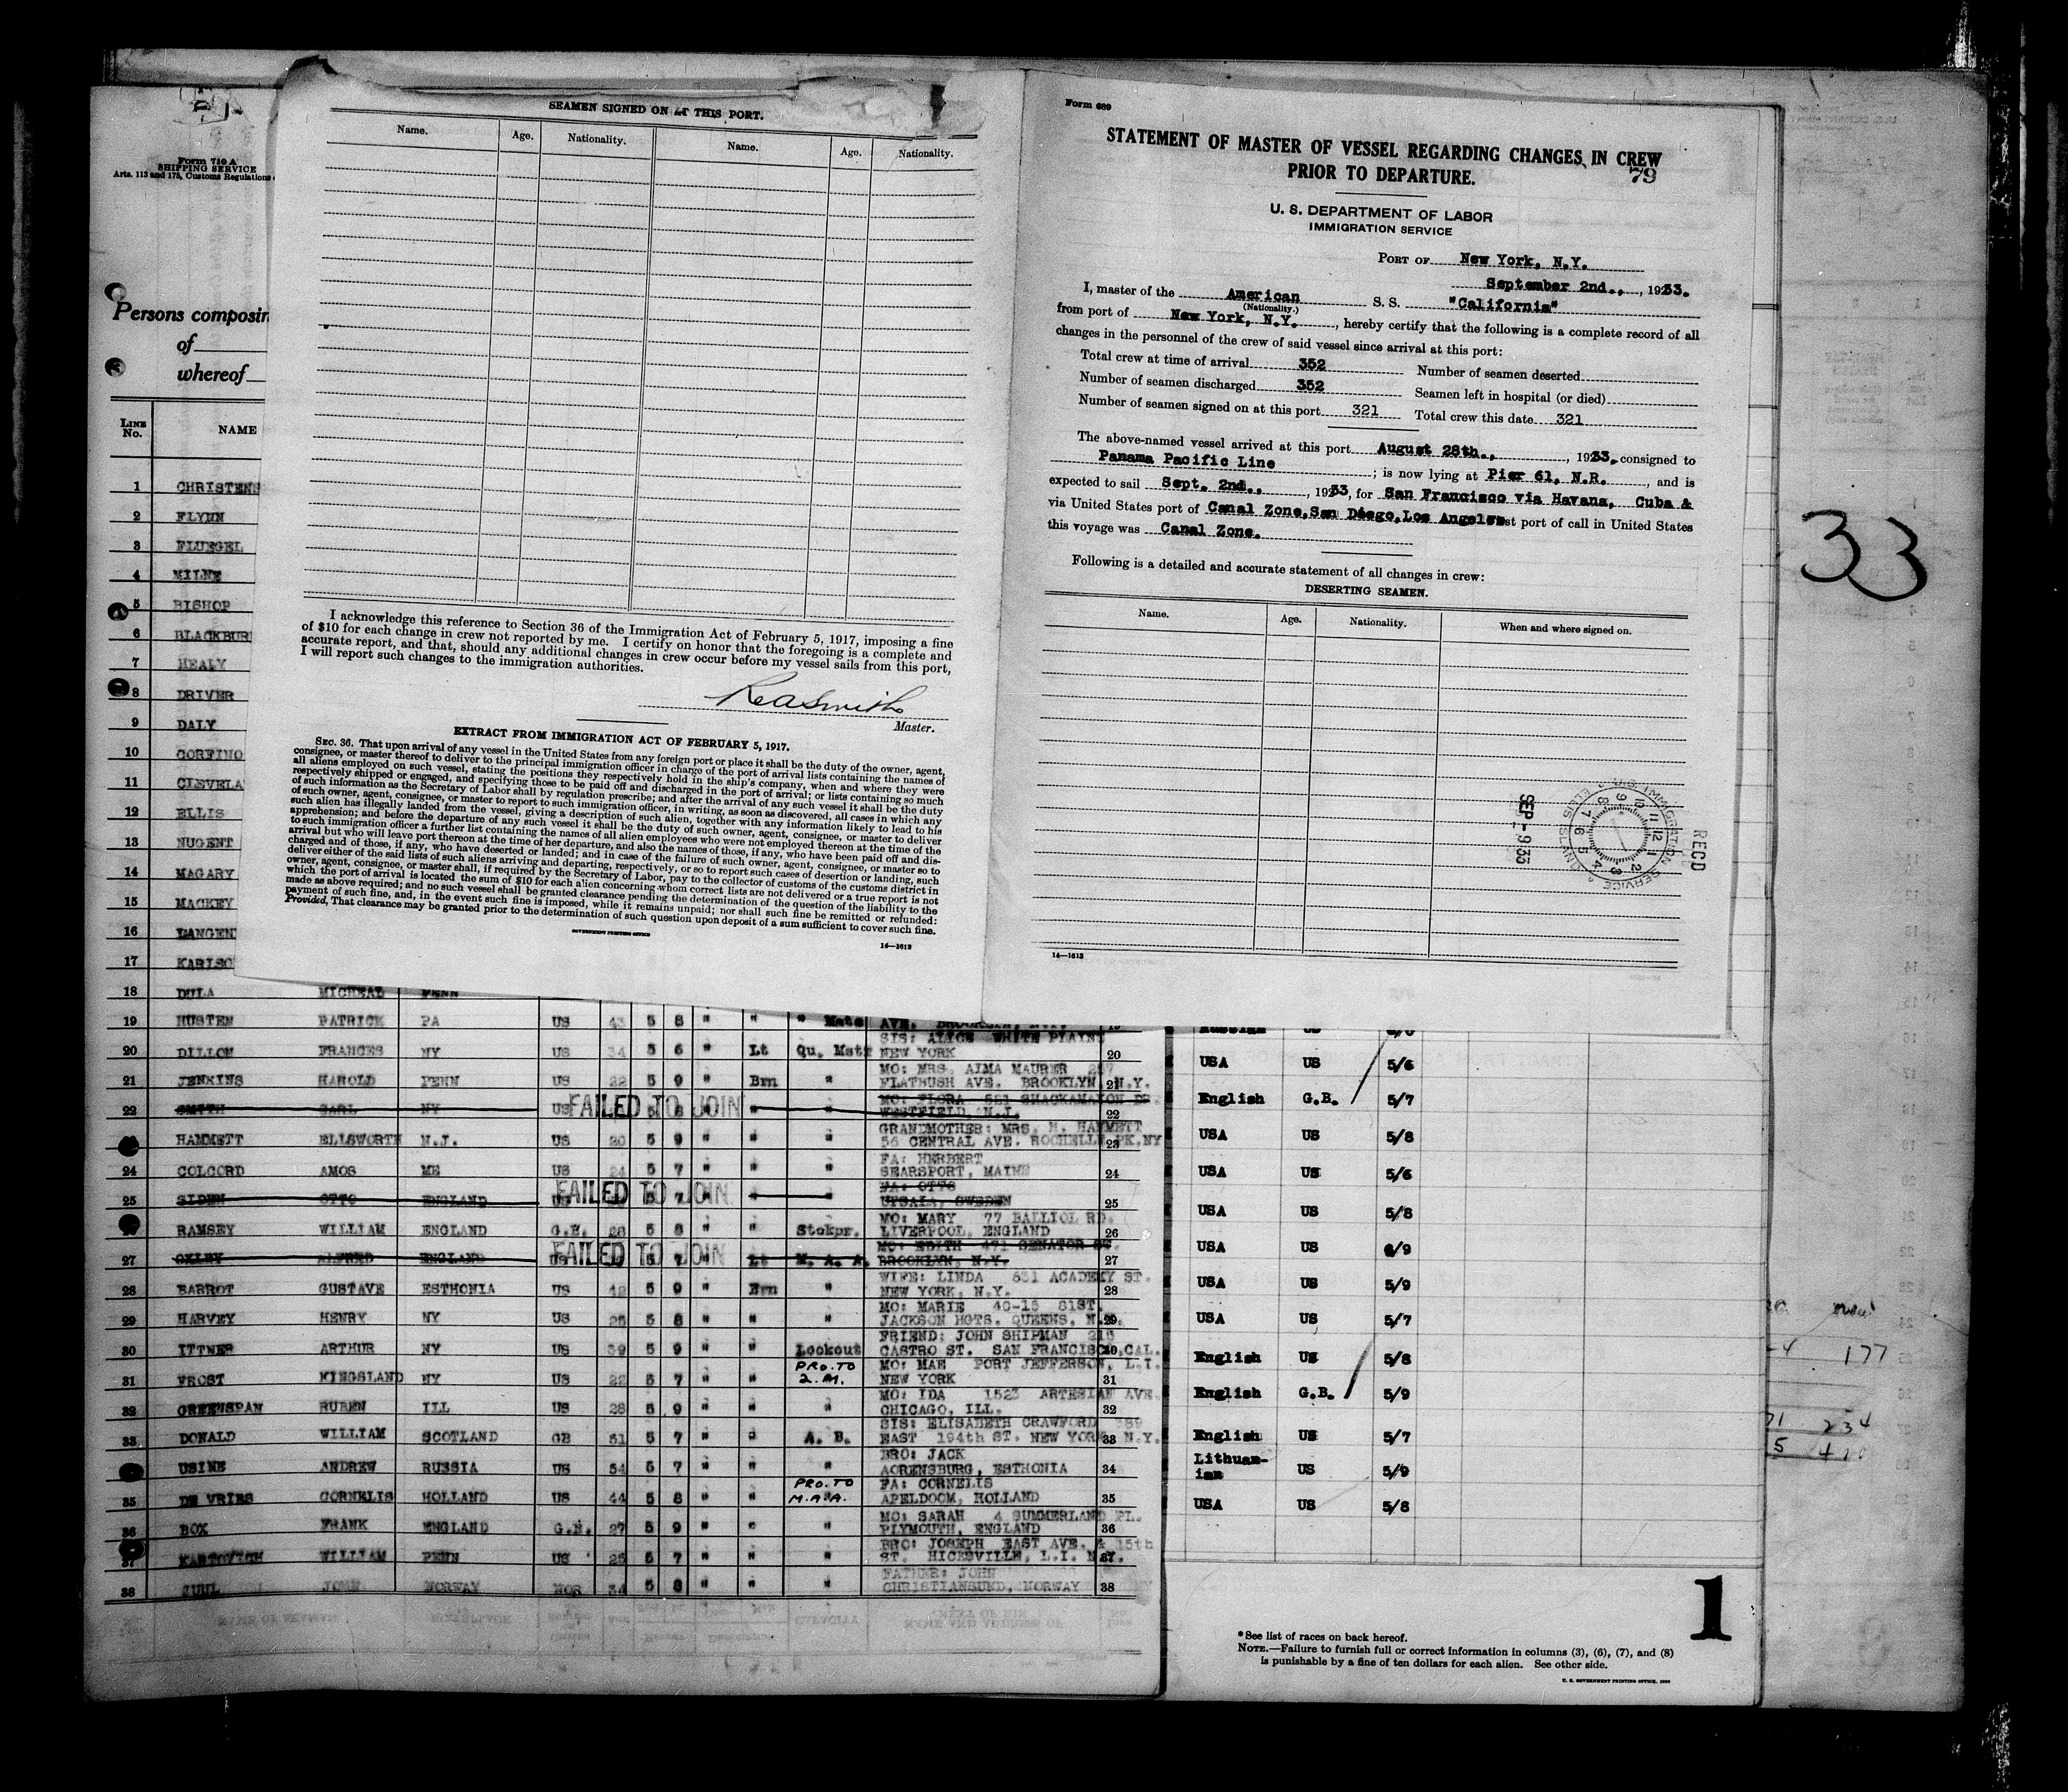 SEAMEN SIGNED ON AT THIS PORT.
Name. Age. Nationality. Name. Age. Nationality.
I acknowledge this reference to Section 36 of the Immigration Act of February 5, 1917, imposing a fine
of $10 for each change in crew not reported by me. I certify on honor that the foregoing is a complete and
accurate report, and that, should any additional changes in crew occur before my vessel sails from this port,
I will report such changes to the immigration authorities.
Master.
EXTRACT FROM IMMIGRATION ACT OF FEBRUARY 5, 1917.
SEC. 36. That upon arrival of any vessel in the United States from any foreign port or place it shall be the duty of the owner, agent,
consignee, or master thereof to deliver to the principal immigration officer in charge of the port of arrival lists containing the names of
all aliens employed on such vessel, stating the positions they respectively hold in the ship's company, when and where they were
respectively shipped or engaged, and specifying those to be paid off and discharged in the port of arrival; or lists containing so much
of such information as the Secretary of Labor shall by regulation prescribe; and after the arrival of any such vessel it shall be the duty
of such owner, agent, consignee, or master to report to such immigration officer, in writing, as soon as discovered, all cases in which any
such alien has illegally landed from the vessel, giving a description of such alien, together with any information likely to lead to his
apprehension; and before the departure of any such vessel it shall be the duty of such owner, agent, consignee, or master to deliver
to such immigration officer a further list containing the names of all alien employees who were not employed thereon at the time of the
arrival but who will leave port thereon at the time of her departure, and also the names of those, if any, who have been paid off and dis-
charged and of those, if any, who have deserted or landed; and in case of the failure of such owner, agent, consignee, or master so to
deliver either of the said lists of such aliens arriving and departing, respectively, or so to report such cases of desertion or landing, such
owner, agent, consignee, or master shall, if required by the Secretary of Labor, pay to the collector of customs of the customs district in
which the port of arrival is located the sum of $10 for each alien concerning whom correct lists are not delivered or a true report is not
made as above required; and no such vessel shall be granted clearance pending the determination of the question of the liability to the
payment of such fine, and, in the event such fine is imposed, while it remains unpaid; nor shall such fine be remitted or refunded:
Provided, That clearance may be granted prior to the determination of such question upon deposit of a sum sufficient to cover such fine.
GOVERNMENT PRINTING OFFICE
14—1613
Form 689
STATEMENT OF MASTER OF VESSEL REGARDING CHANGES IN CREW
PRIOR TO DEPARTURE.
79
U. S. DEPARTMENT OF LABOR
IMMIGRATION SERVICE
PORT OF New York, N.Y.
September 2nd., , 1933.
I, master of the American S. S. "California"
(Nationality.)
from port of New York, N.Y. , hereby certify that the following is a complete record of all
changes in the personnel of the crew of said vessel since arrival at this port:
Total crew at time of arrival 352 Number of seamen deserted
Number of seamen discharged 352 Seamen left in hospital (or died)
Number of seamen signed on at this port 321 Total crew this date 321
The above-named vessel arrived at this port August 28th., , 1933, consigned to
Panama Pacific Line ; is now lying at Pier 61, N.R. , and is
expected to sail Sept. 2nd., , 1933, for San Francisco via Havana, Cuba &
via United States port of Canal Zone,San Diego,Los Angeles st port of call in United States
this voyage was Canal Zone.
Following is a detailed and accurate statement of all changes in crew:
DESERTING SEAMEN.
Name. Age. Nationality. When and where signed on.
U.S. IMMIGRATION SERVICE ELLIS ISLAND
RECD
14—1613
33
Form 710 A
SHIPPING SERVICE
Arts. 113 and 175, Customs Regulations
Persons composin
of
whereof
LINE No. NAME
1 CHRISTENS
2 FLYNN
3 FLUEGEL
4 MILNE
5 BISHOP
6 BLACKBUR
7 HEALY
8 DRIVER
9 DALY
10 CORFINO
11 CLEVELA
12 ELLIS
13 NUGENT
14 MAGARY
15 MACKEY
16 LANGEN
17 KARLSO
18 DULA MICHEAL PENN
19 HUSTEN PATRICK PA US 43 5 8 " " " Mate AVE. BROOKLYN, N.Y. 19
20 DILLON FRANCES NY US 34 5 6 " Lt Qu. Mstr SIS: ALICE WHITE PLAINS NEW YORK 20
21 JENKINS HAROLD PENN US 22 5 9 " Brn " MO: MRS. AIMA MAURER 267 FLATBUSH AVE. BROOKLYN, N.Y. 21
22 SMITH CARL NY US FAILED TO JOIN MO: FLORA WESTFIELD, N.J. 22
HAMMETT ELLSWORTH N.J. US 20 5 9 " " " GRANDMOTHER: MRS. M. HAMMETT 56 CENTRAL AVE. ROCHELLE PK,NY 23
24 COLCORD AMOS ME US 24 5 7 " " " FA: HERBERT SEARSPORT, MAINE 24
25 SIDEN OTTO ENGLAND US FAILED TO JOIN FA: OTTO UTSALA, SWEDEN 25
RAMSEY WILLIAM ENGLAND G.B. 28 5 8 " " Stokpr. MO: MARY 77 BALLIOL RD. LIVERPOOL, ENGLAND 26
27 OXLEY ALFRED ENGLAND US FAILED TO JOIN Lt M. A. A. MO: EDITH 471 SENATOR ST. BROOKLYN, N.Y. 27
28 BARROT GUSTAVE ESTHONIA US 42 5 9 " Brn " WIFE: LINDA 631 ACADEMY ST. NEW YORK, N.Y. 28
29 HARVEY HENRY NY US 25 5 8 " " " MO: MARIE 40-15 81ST. JACKSON HGTS. QUEENS, N.Y. 29
30 ITTNER ARTHUR NY US 39 5 9 " " Lookout FRIEND: JOHN SHIPMAN 215 CASTRO ST. SAN FRANCISCO,CAL. 30
31 FROST KINGSLAND NY US 22 5 7 " " PRO. TO 2. M. MO: MAE PORT JEFFERSON, L.I. NEW YORK 31
32 GREENSPAN RUBEN ILL US 28 5 9 " " " MO: IDA 1523 ARTESIAN AVE. CHICAGO, ILL. 32
33 DONALD WILLIAM SCOTLAND GB 51 5 7 " " A. B. SIS: ELISABETH CRAWFORD 389 EAST 194th ST. NEW YORK N.Y. 33
USINE ANDREW RUSSIA US 54 5 7 " " " BRO: JACK AORENSBURG, ESTHONIA 34
35 DE VRIES CORNELIS HOLLAND US 44 5 8 " " PRO. TO M.A.A. FA: CORNELIS APELDOOM, HOLLAND 35
36 BOX FRANK ENGLAND G.B. 27 5 9 " " " MO: SARAH 4 SUMMERLAND PL. PLYMOUTH, ENGLAND 36
37 KASTOVICH WILLIAM PENN US 25 5 7 " " " BRO: JOSEPH EAST AVE. & 15th ST. HICKSVILLE, L.I. N.Y. 37
38 JUUL JOHN NORWAY NOR 34 5 8 " " " FATHER: JOHN CHRISTIANSUND, NORWAY 38
Russian US
USA US 5/6
English G.B. 5/7
USA US 5/8
USA US 5/6
USA US 5/8
USA US 6/9
USA US 5/9
USA US 5/7
English US 5/8
English G.B. 5/9
English US 5/7
Lithuan-
ian US 5/9
USA US 5/8
177
234
1
*See list of races on back hereof.
NOTE.—Failure to furnish full or correct information in columns (3), (6), (7), and (8)
is punishable by a fine of ten dollars for each alien. See other side.
U. S. GOVERNMENT PRINTING OFFICE: 1930